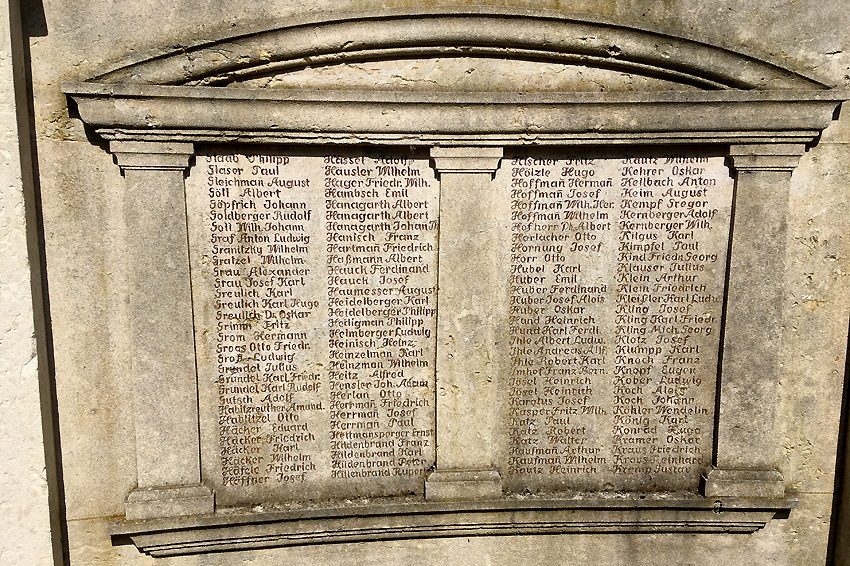 Haab Philipp
Glaser Paul
Gleichman August
Göll Albert
Göpfrich Johann
Goldberger Rudolf
Goll Wilh. Johann
Graf Anton Ludwig
Granitzky Wilhelm
Gratzel Wilhelm
Grau Alexander
Grau Josef Karl
Greulich Karl
Greulich Karl Hugo
Greulich Dr. Oskar
Grimm Fritz
Grom Hermann
Groos Otto Friedr.
Groß Ludwig
Gründel Julius
Gründel Karl Friedr.
Gründel Karl Rudolf
Gutsch Adolf
Habitzreuther Amand.
Hablitzel Otto
Häcker Eduard
Häcker Friedrich
Häcker Karl
Häcker Wilhelm
Häfele Friedrich
Häffner Josef
Hässel Adolf
Häusler Wilhelm
Hager Friedr. Wilh.
Hambsch Emil
Hanagarth Albert
Hanagarth Albert
Hanagarth Johan Th
Hanisch Franz
Hartman Friedrich
Haßmann Albert
Hauck Ferdinand
Hauck Josef
Haumesser August
Heidelberger Karl
Heidelberger Philipp
Heiligman Philipp
Heimberger Ludwig
Heinisch Heinz
Heinzelman Karl
Heinzman Wilhelm
Heitz Alfred
Hensler Joh. Adam
Herlan Otto
Herrman Friedrich
Herrman Josef
Herrman Paul
Hettmansperger Ernst
Hildenbrand Franz
Hildenbrand Karl
Hildenbrand Peter
Hillenbrand Rupert
Hischer Fritz
Hölzle Hugo
Hoffman Herman
Hoffman Josef
Hoffman Wilh. Her.
Hoffman Wilhelm
Hofherr Ph. Albert
Horlacher Otto
Hornung Josef
Horr Otto
Hubel Karl
Huber Emil
Huber Ferdinand
Huber Josef Alois
Huber Oskar
Hund Heinrich
Hund Karl Ferdi.
Ihle Albert Ludw.
Ihle Andreas Alf.
Ihle Robert Karl
Imhof Franz Bern.
Jösel Heinrich
Josel Heinrich
Karatus Josef
Kasper Fritz Wilh.
Katz Paul
Katz Robert
Katz Walter
Kaufman Arthur
Kaufman Wilhelm
Kautz Heinrich
Kautz Wilhelm
Kehrer Oskar
Heilbach Anton
Heim August
Kempf Gregor
Kernberger Adolf
Kernberger Wilh.
Kilgus Karl
Kimpfel Paul
Kind Friedr. Georg
Klauser Julius
Klein Arthur
Klein Friedrich
Karl Ludw
Kling Josef
Kling Karl Friedr
Kling Mich. Georg
Klotz Josef
Klumpp Karl
Knoch Franz
Knopf Eugen
Kober Ludwig
Koch Alois
Koch Johann
Köhler Wendelin
König Karl
Konrad Hugo
Kramer Oskar
Kraus Friedrich
Kraus Reinhard
Kremp Gustav